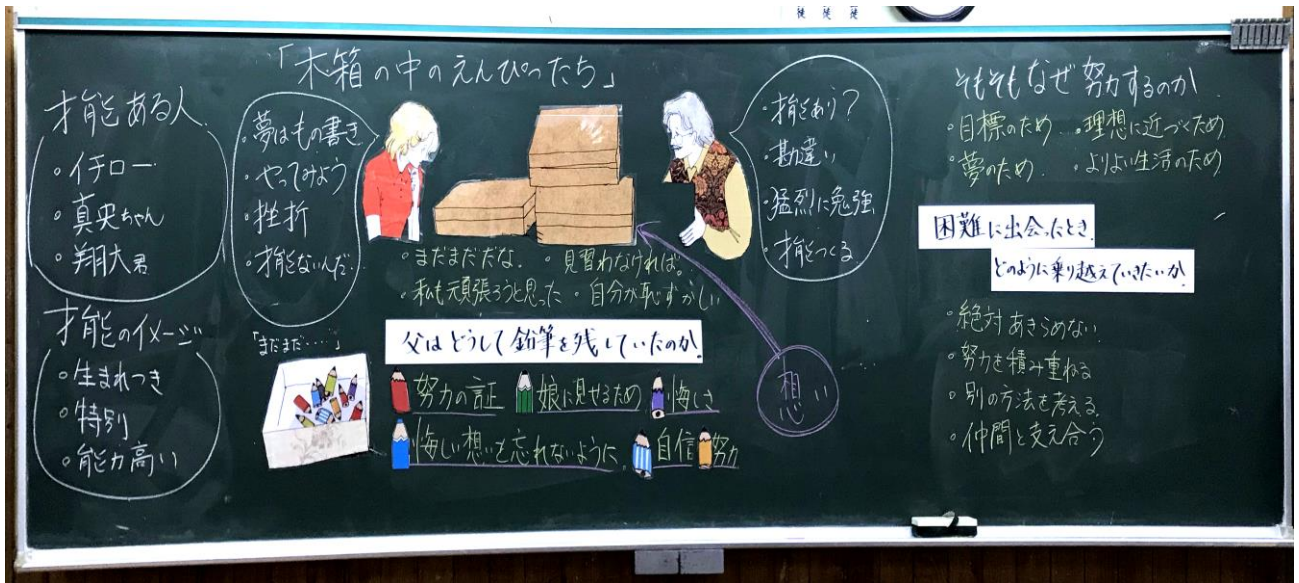 「木箱の中のえんぴつたち」
才能ある人
・イチロー
・真央ちゃん
・翔大君
才能のイメージ
・生まれつき
・特別
・能力高い
・夢はもの書き
・やってみよう
・挫折
・才能ないんだ
・才能あり?
・勘違い
・猛烈に勉強
・才能つくる
・まだまだだな。 ・見習わなければ。
・私も頑張ろうと思った ・自分が恥ずかしい
「まだまだ・・・・」
父はどうして鉛筆を残していたのか
努力の証 娘に見せるため 悔しさ
悔しい想いを忘れないように 自信 努力
想い
そもそもなぜ努力するのか
・目標のため ・理想に近づくため
・夢のため ・よりよい生活のため
困難に出会ったとき
どのように乗り越えていきたいか
・絶対あきらめない
・努力を積み重ねる
・別の方法を考える
・仲間と支え合う